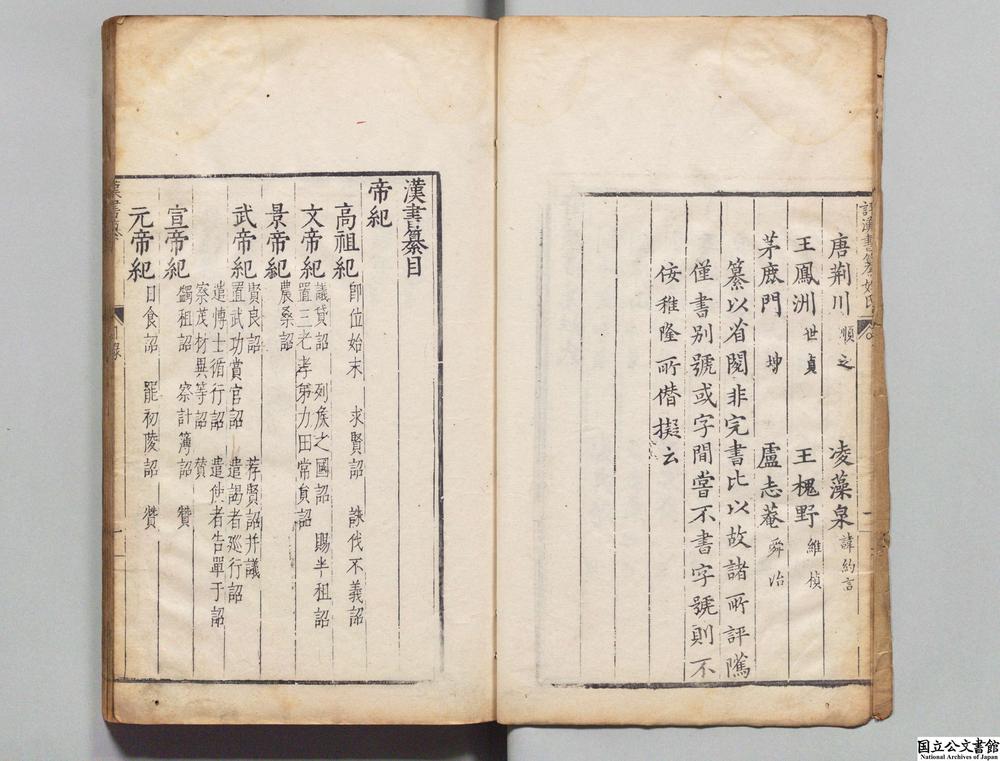 唐荆川 順之 凌藻泉 諱約言
王鳳洲 世貞 王槐野 維楨
茅鹿門 坤 盧志菴 舜治
纂以省閱非完書比以故諸所評隲
僅書别號或字間嘗不書字號則不
佞稚隆所僭擬云
漢書纂目
帝紀
高祖紀 即位始末 求賢詔 誅伐不義詔
文帝紀 議貸詔 列侯之國詔 賜半租詔
置三老孝弟力田常員詔
景帝紀 農桑詔
武帝紀 賢良詔 荐賢詔并議
置武功賞官詔 遣謁者廵行詔
遣博士循行詔 遣使者告單于詔
察茂材異等詔 贊
宣帝紀 蠲租詔 察計簿詔 贊
元帝紀 日食詔 罷初陵詔 贊
国立公文書館
National Archives of Japan